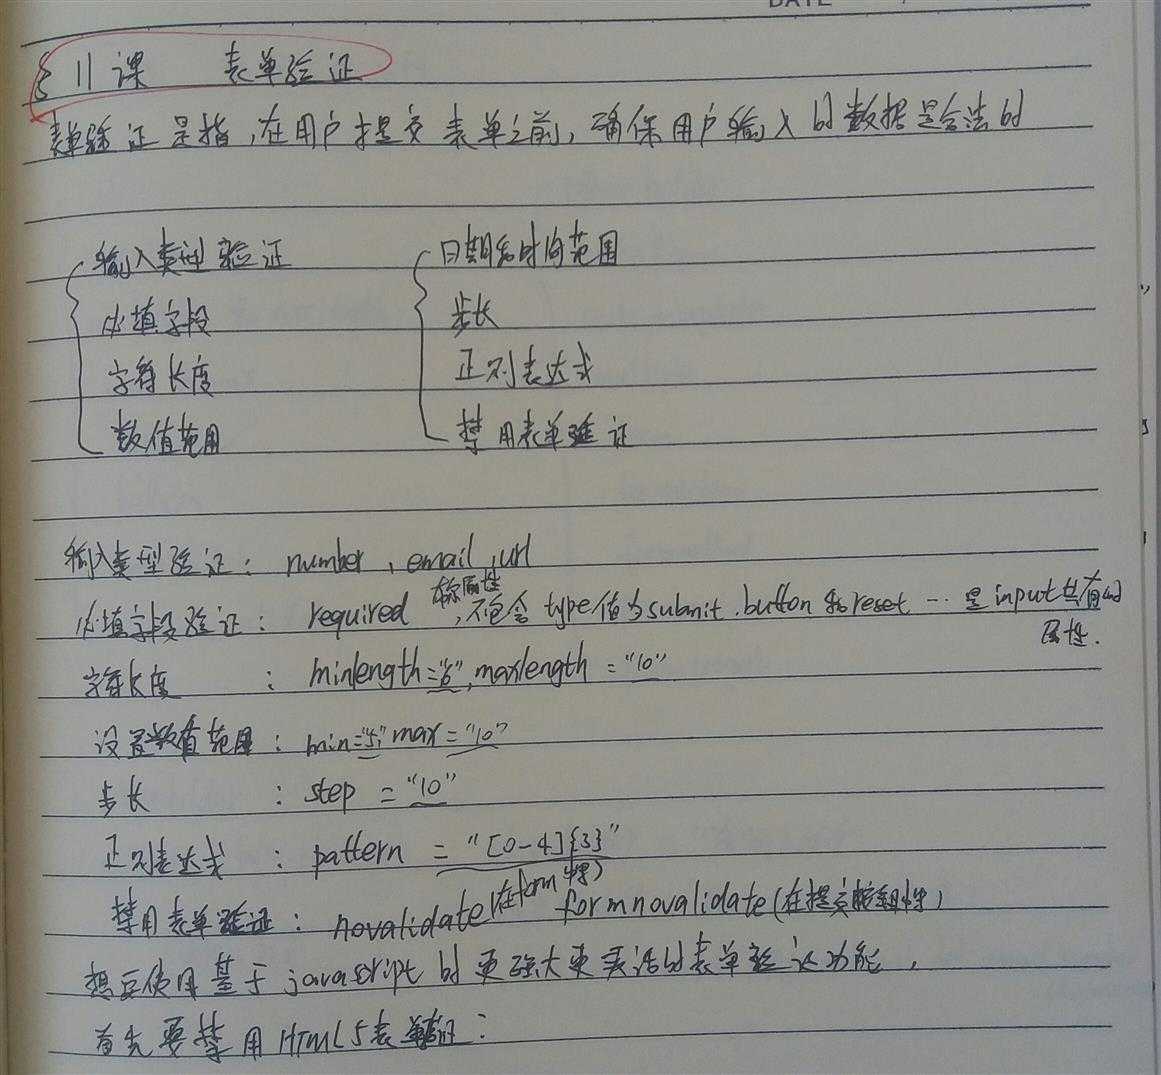 DATE
§11课 表单验证
表单验证是指,在用户提交表单之前,确保用户输入的数据是合法的
输入类型验证 日期和时间范围
必填字段 步长
字符长度 正则表达式
数值范围 禁用表单验证
输入类型验证: number, email, url
必填字段验证: required 布尔属性,不包含type值为submit.button和reset… 是input共有的
属性.
字符长度 : minlength="6", maxlength="10"
设置数值范围: min="5" max="10"
步长 : step="10"
正则表达式 : pattern="[0-4]{3}"
禁用表单验证: novalidate(在form中) formnovalidate(在提交按钮中)
想要使用基于javascript的更强大更灵活的表单验证功能,
首先要禁用HTML5表单验证: